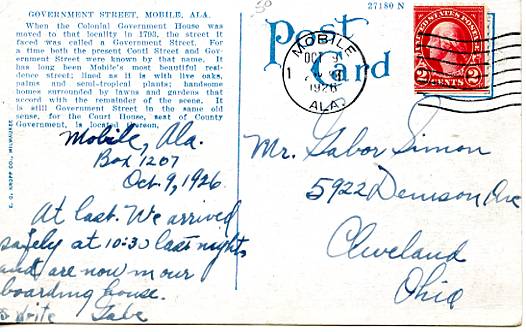 50
27180 N
GOVERNMENT STREET, MOBILE, ALA.
When the Colonial Government House was
moved to that locality in 1793, the street it
faced was called a Government Street. For
a time both the present Conti Street and Gov-
ernment Street were known by that name. It
has long been Mobile's most beautiful resi-
dence street; lined as it is with live oaks,
palms and semi-tropical plants; handsome
homes surrounded by lawns and gardens that
accord with the remainder of the scene. It
is still Government Street in the same old
sense, for the Court House, seat of County
Government, is located thereon.
E. C. KROPP CO., MILWAUKEE
Post
Card
MOBILE
OCT 9
1
1926
ALA.
UNITED STATES POSTAGE
2 CENTS 2
Mobile, Ala.
Box 1207
Oct. 9, 1926.
At last. We arrived
safely at 10:30 last night,
and are now in our
boarding house.
write Gabe
Mr. Gabor Simon
5922 Denison Ave
Cleveland
Ohio